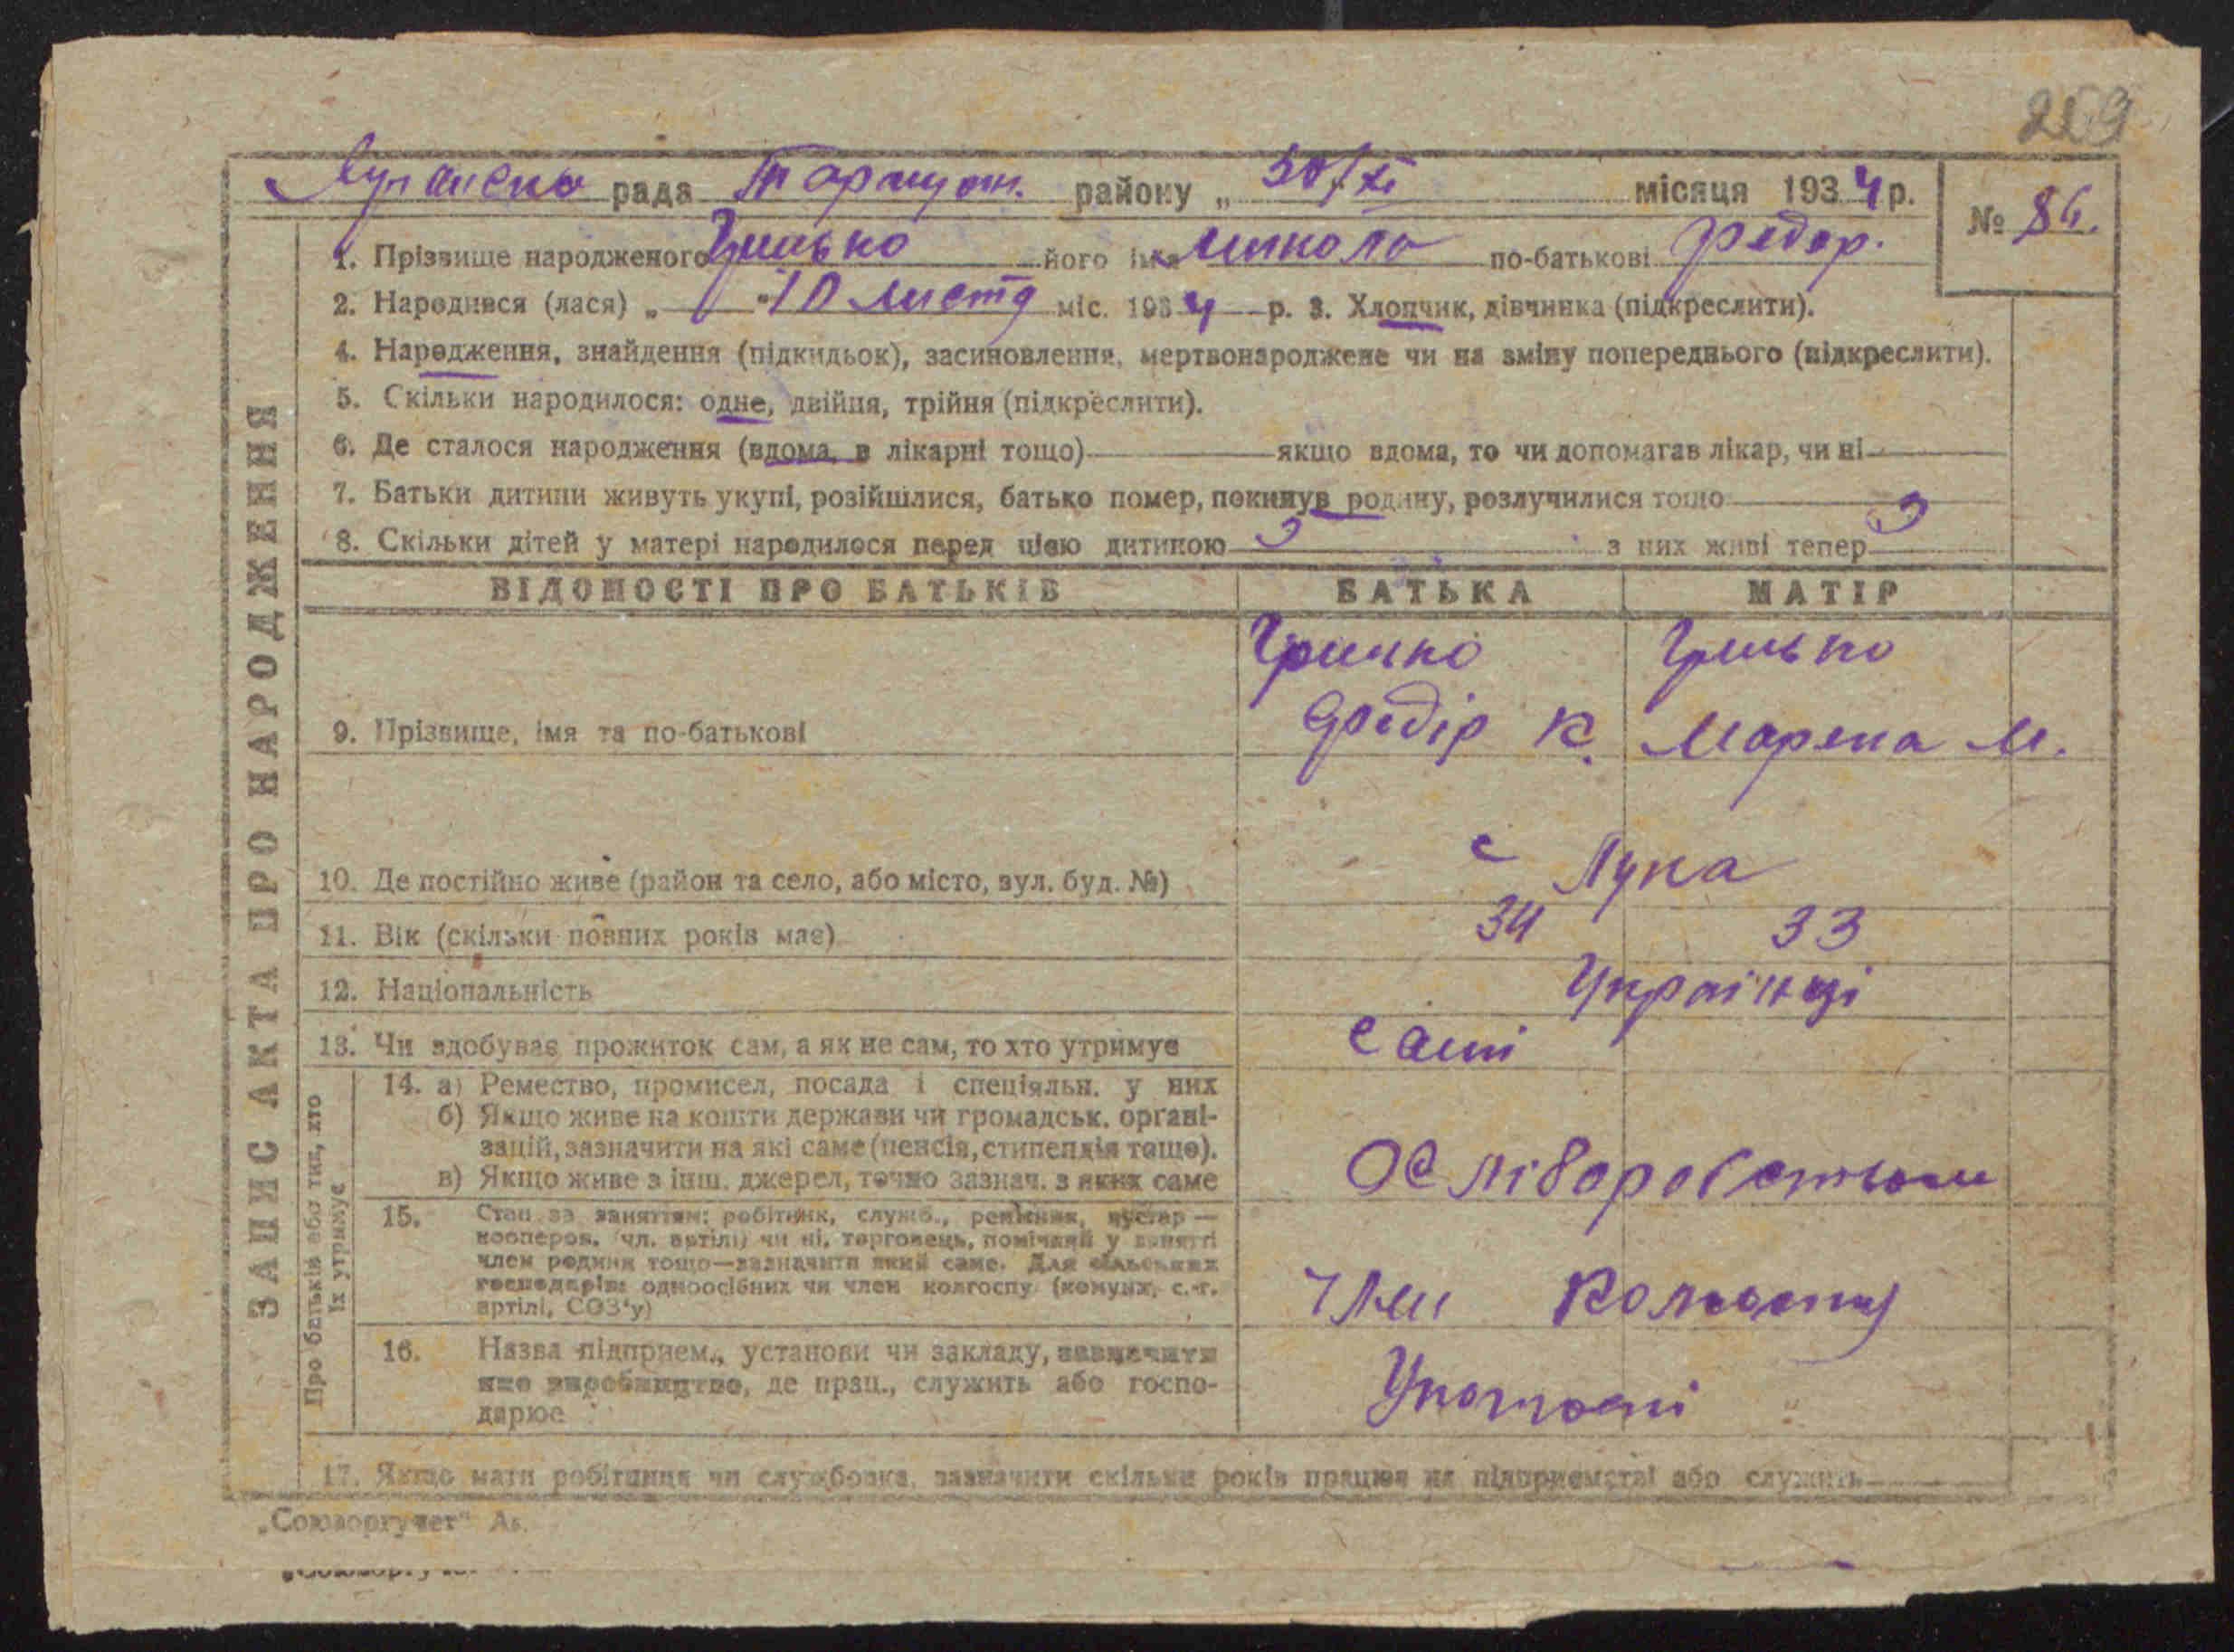 269
рада района „ 30/XI місяця 1934 р.
№ 86.
1. Прізвище народженого Гринько його імя Микола по-батькові Федор.
2. Народився (лася) „ 10 листо міс. 1934 р. 3. Хлопчик, дівчинка (підкреслити).
4. Народження, знайдення (підкидьок), засиновлення, мертвонароджене чи на зміну попереднього (підкреслити).
5. Скільки народилося: одне, двійня, трійня (підкреслити).
6. Де сталося народження (вдома, в лікарні тощо) якщо вдома, то чи допомагав лікар, чи ні
7. Батьки дитини живуть укупі, розійшлися, батько помер, покинув родину, розлучилися тощо
8. Скільки дітей у матері народилося перед цією дитиною 3 з них живі тепер 3
ЗАПИС АКТА ПРО НАРОДЖЕННЯ
ВІДОМОСТІ ПРО БАТЬКІВ БАТЬКА МАТІР
Гринько Гринько
9. Прізвище, імя та по-батькові Федір К. М.
10. Де постійно живе (район та село, або місто, вул. буд. №) с Лука
11. Вік (скільки повних років має) 34 33
12. Національність Українці
13. Чи здобуває прожиток сам, а як не сам, то хто утримує самі
Про батьків або тих, хто їх утримує
14. а) Ремество, промисел, посада і спеціяльн. у них
б) Якщо живе на кошти держави чи громадськ. органі-
зацій, зазначити на які саме (пенсія, стипендія тощо).
в) Якщо живе з інш. джерел, точно зазнач. з яких саме
15. Стан за заняттям: робітник, служб., ремісник, кустар —
кооперов. (чл. артілі) чи ні, торговець, помічний у занятті
член родини тощо—зазначити який саме. Для сільських
господарів: одноосібних чи член колгоспу (комуни, с.-г.
артілі, СОЗ'у) Член Колгоспу
16. Назва підприєм., установи чи закладу, зазначити
яке виробництво, де прац., служить або госпо-
дарює Уколгоспі
17. Якщо мати робітниця чи службовка, зазначити скільки років працює на підприємстві або служить
„Союзоргучет"